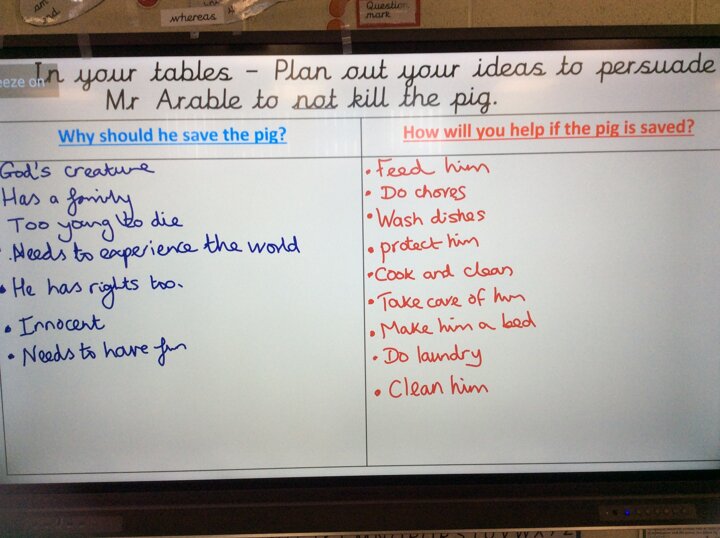 and
whereas
Question
mark
eeze on
In your tables – Plan out your ideas to persuade
Mr Arable to not kill the pig.
Why should he save the pig?
God's creature
Has a family
Too young to die
Needs to experience the world
• He has rights too.
• Innocent
• Needs to have fun
How will you help if the pig is saved?
• Feed him
• Do chores
• Wash dishes
• protect him
• Cook and clean
• Take care of him
• Make him a bed
• Do laundry
• Clean him